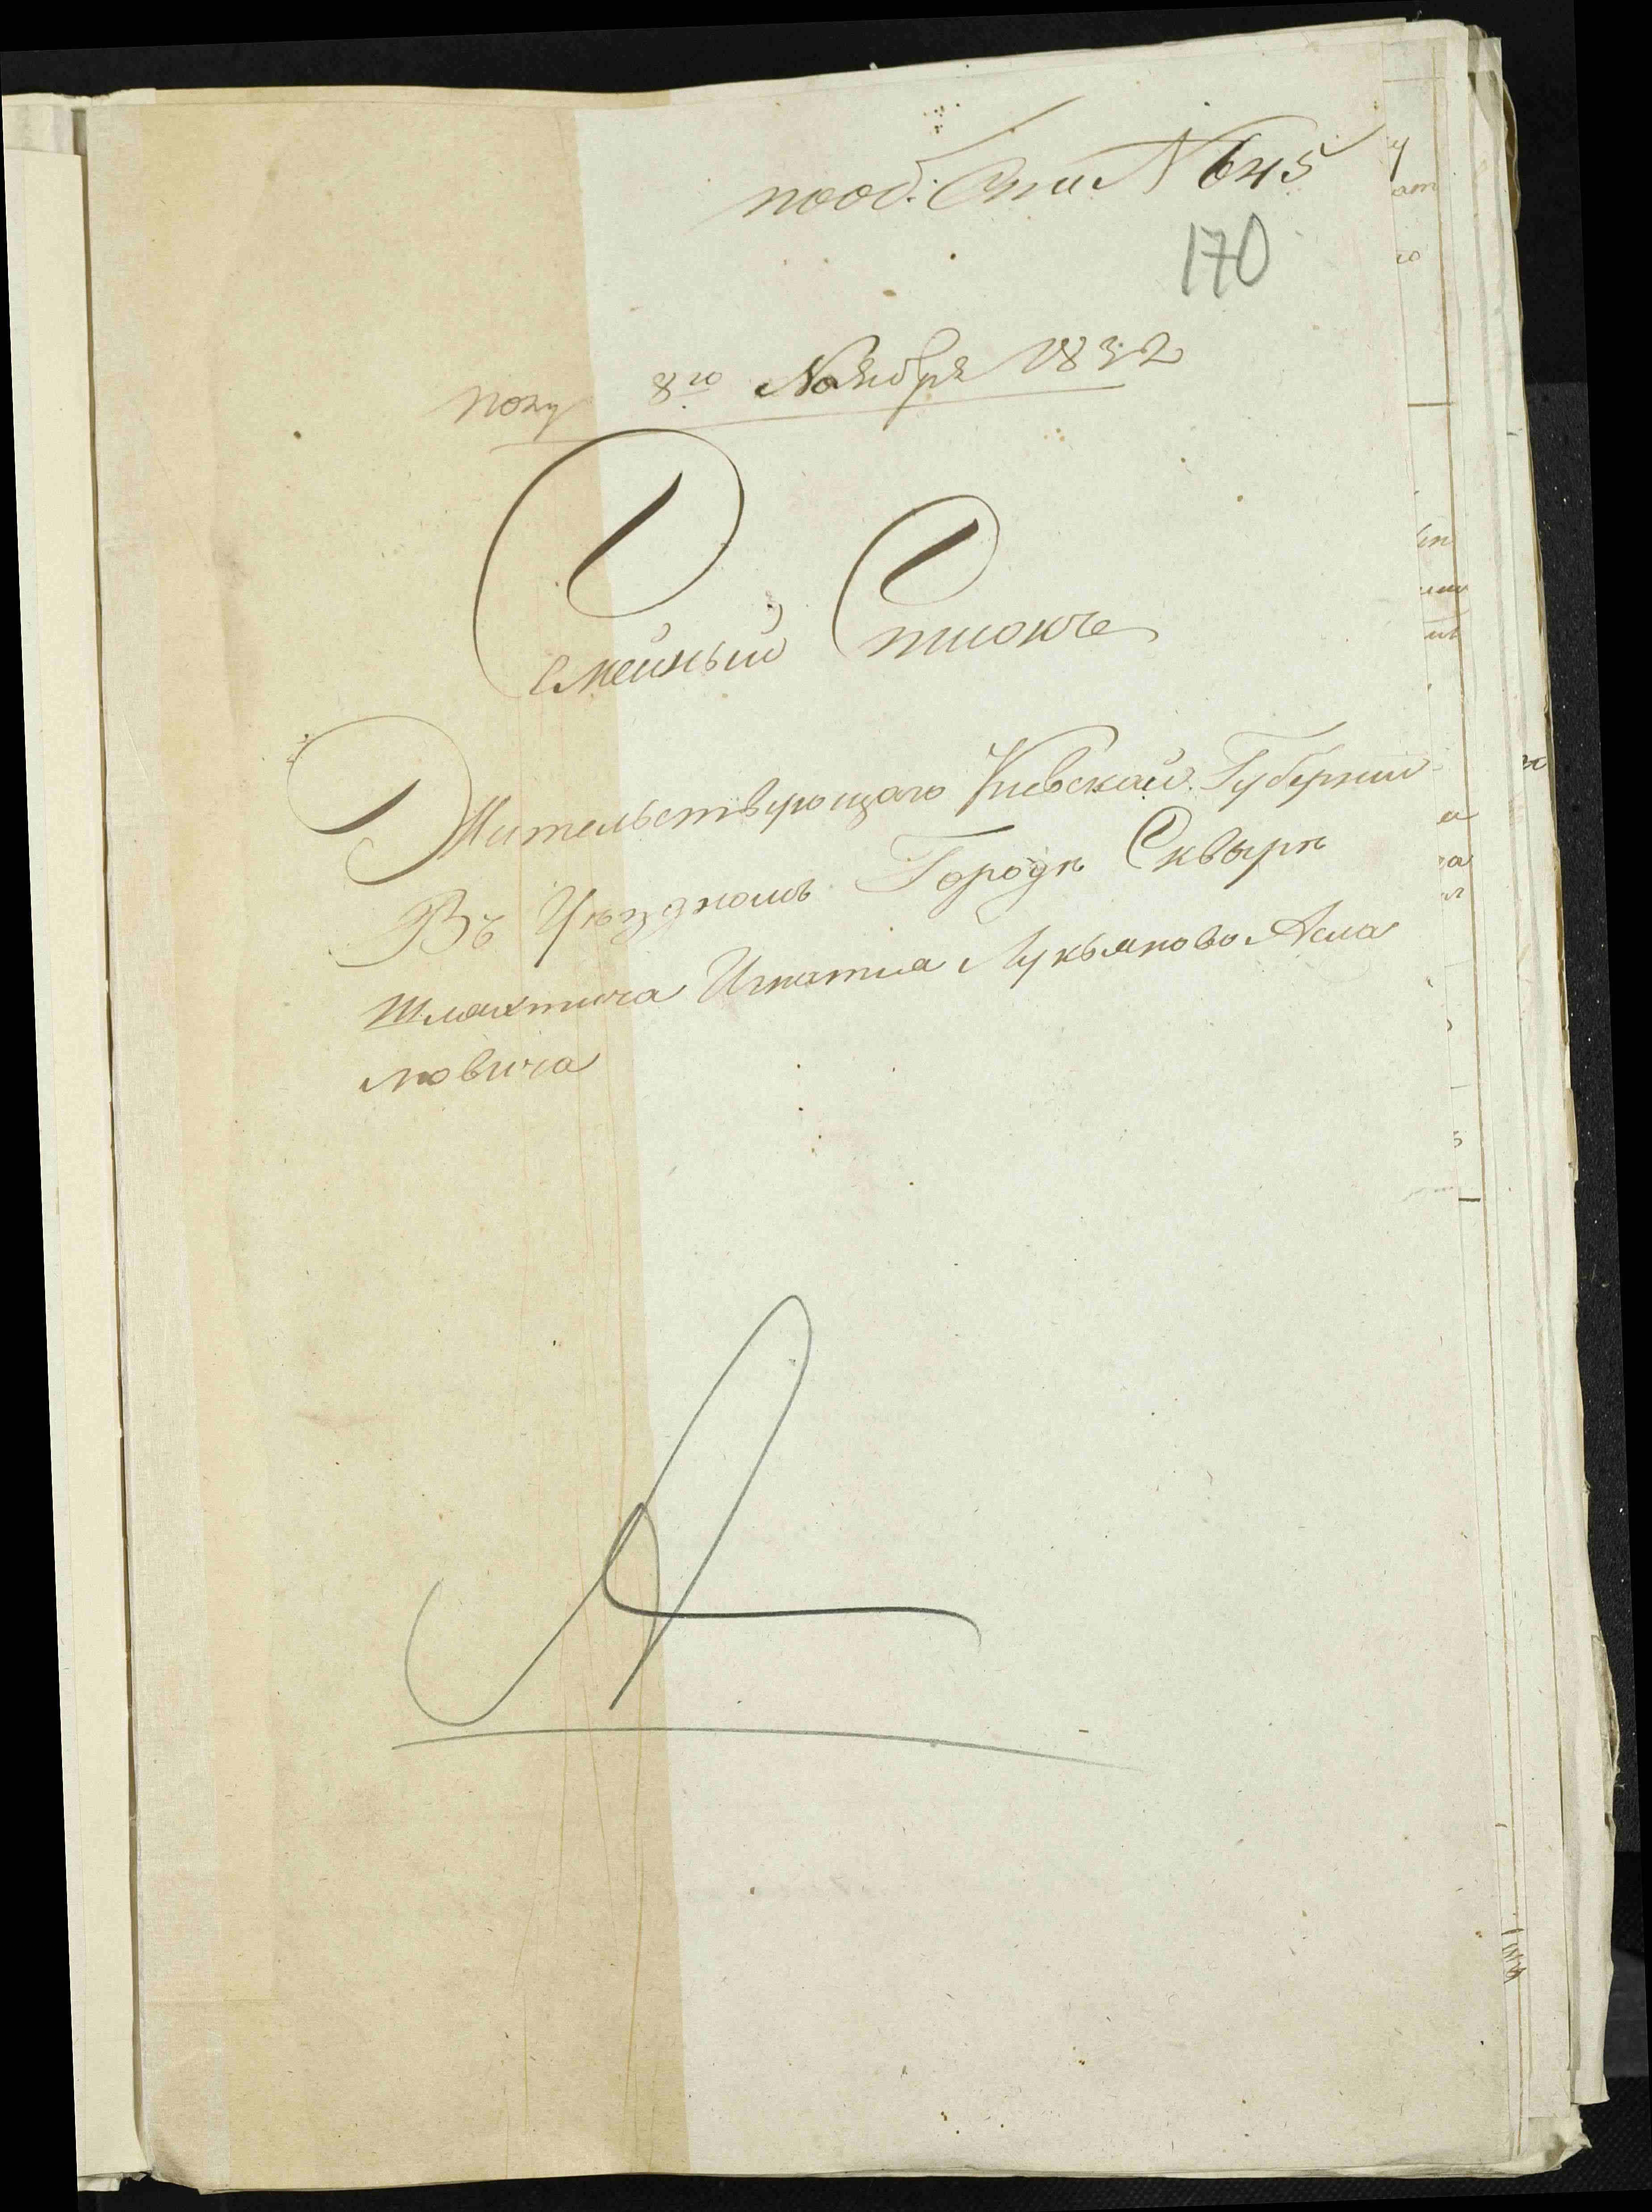 пооб: Опи № 645
170
полу 8го Ноября 1832
Семейный Списокъ
Жительствующаго Киевской Губернии
Въ Уѣздномъ Городѣ Сквырѣ
Шляхтича Игнатиа Лукьяново Асма
ловича